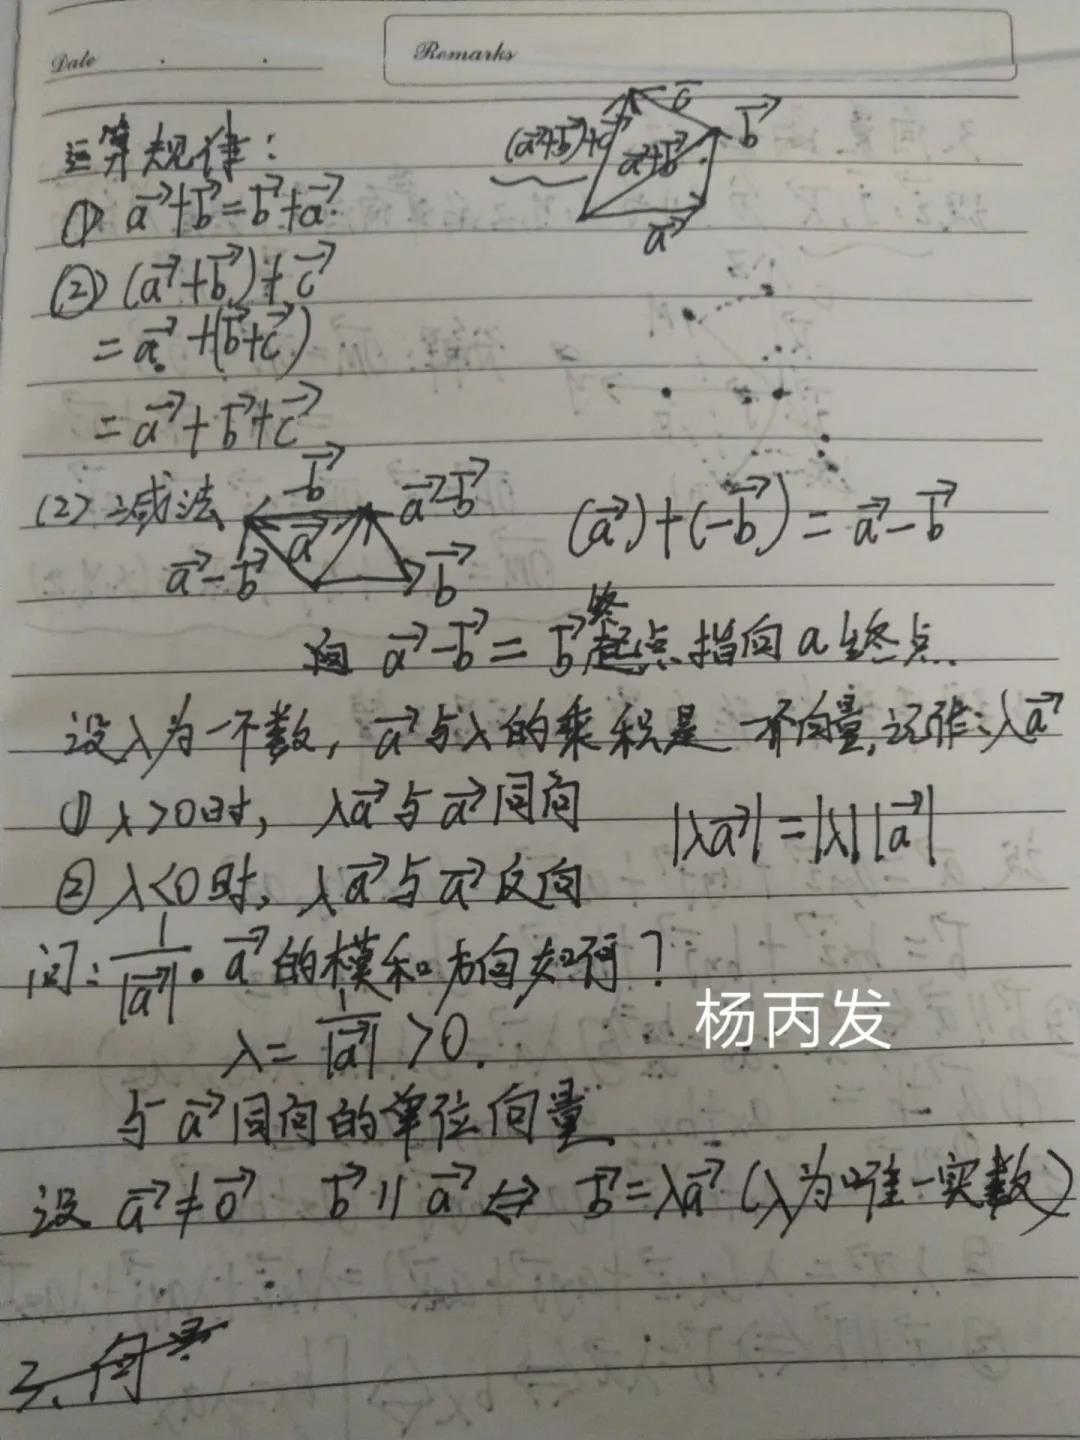 Date
Remarks
运算规律:
① a⃗+b⃗=b⃗+a⃗
② (a⃗+b⃗)+c⃗
=a⃗+(b⃗+c⃗)
=a⃗+b⃗+c⃗
c⃗
(a⃗+b⃗)+c⃗
a⃗+b⃗
b⃗
a⃗
(2)减法
-b⃗
a⃗-b⃗
a⃗
a⃗-b⃗
b⃗
(a⃗)+(-b⃗)=a⃗-b⃗
a⃗-b⃗=b⃗终点指向a的终点
设λ为一个数,a⃗与λ的乘积是一个向量,记作:λa⃗
① λ>0时,λa⃗与a⃗同向
|λa⃗|=|λ||a⃗|
② λ<0时,λa⃗与a⃗反向
问:1/|a⃗|·a⃗的模和方向如何?
杨丙发
λ=1/|a⃗|>0.
与a⃗同向的单位向量
设 a⃗≠0⃗ b⃗∥a⃗⇔b⃗=λa⃗(λ为唯一实数)
3.向量